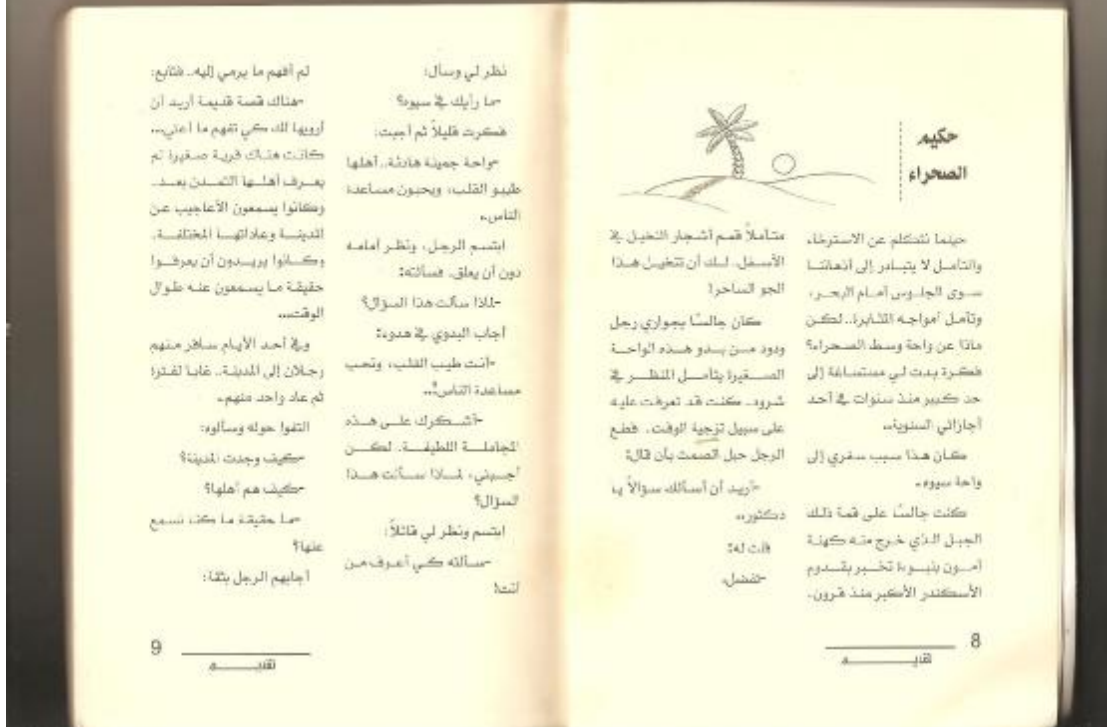 حكيم
الصحراء
حينما نتكلم عن الاسترخاء
والتأمل لا يتبادر إلى أذهاننا
سوى الجلوس أمام البحر،
وتأمل أمواجه المثابرة.. لكن
ماذا عن واحة وسط الصحراء؟
فكرة بدت لي مستساغة إلى
حد كبير منذ سنوات في أحد
أجازاتي السنوية..
كان هذا سبب سفري إلى
واحة سيوه.
كنت جالسًا على قمة ذلك
الجبل الذي خرج منه كهنة
آمون بنبوءة تخبر بقدوم
الأسكندر الأكبر منذ قرون.
متأملاً قمم أشجار النخيل في
الأسفل. لك أن تتخيل هذا
الجو الساحر!
كان جالسًا بجواري رجل
ودود من بدو هذه الواحة
الصغيرة يتأمل المنظر في
شرود. كنت قد تعرفت عليه
على سبيل تزجية الوقت. قطع
الرجل حبل الصمت بأن قال:
-أريد أن أسألك سؤالاً يا
دكتور..
قلت له:
-تفضل.
8
تقديم
نظر لي وسأل:
-ما رأيك في سيوه؟
فكرت قليلاً ثم أجبت:
-واحة جميلة هادئة.. أهلها
طيبو القلب، ويحبون مساعدة
الناس..
ابتسم الرجل، ونظر أمامه
دون أن يعلق. فسألته:
-لماذا سألت هذا السؤال؟
أجاب البدوي في هدوء:
-أنت طيب القلب، وتحب
مساعدة الناس!..
-أشكرك على هذه
المجاملة اللطيفة. لكن
أجبني، لماذا سألت هذا
السؤال؟
ابتسم ونظر لي قائلاً:
-سألته كي أعرف من
أنت!
لم أفهم ما يرمي إليه.. فتابع:
-هناك قصة قديمة أريد أن
أرويها لك كي تفهم ما أعني...
كانت هناك قرية صغيرة لم
يعرف أهلها التمدن بعد..
وكانوا يسمعون الأعاجيب عن
المدينة وعاداتها المختلفة.
وكانوا يريدون أن يعرفوا
حقيقة ما يسمعون عنه طوال
الوقت...
وفي أحد الأيام سافر منهم
رجلان إلى المدينة.. غابا لفترة
ثم عاد واحد منهم.
التفوا حوله وسألوه:
-كيف وجدت المدينة؟
-كيف هم أهلها؟
-ما حقيقة ما كنا نسمع
عنها؟
أجابهم الرجل بثقة:
9
تقديم